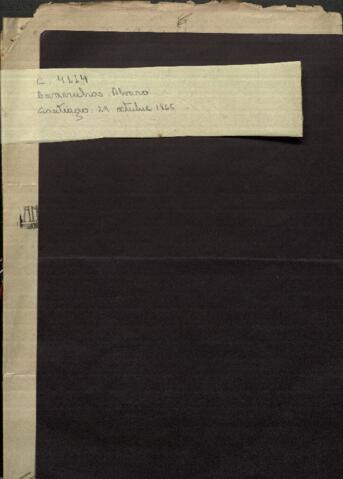 C. 4114
Covarrubias Alvaro
Santiago. 29 octubre 1865